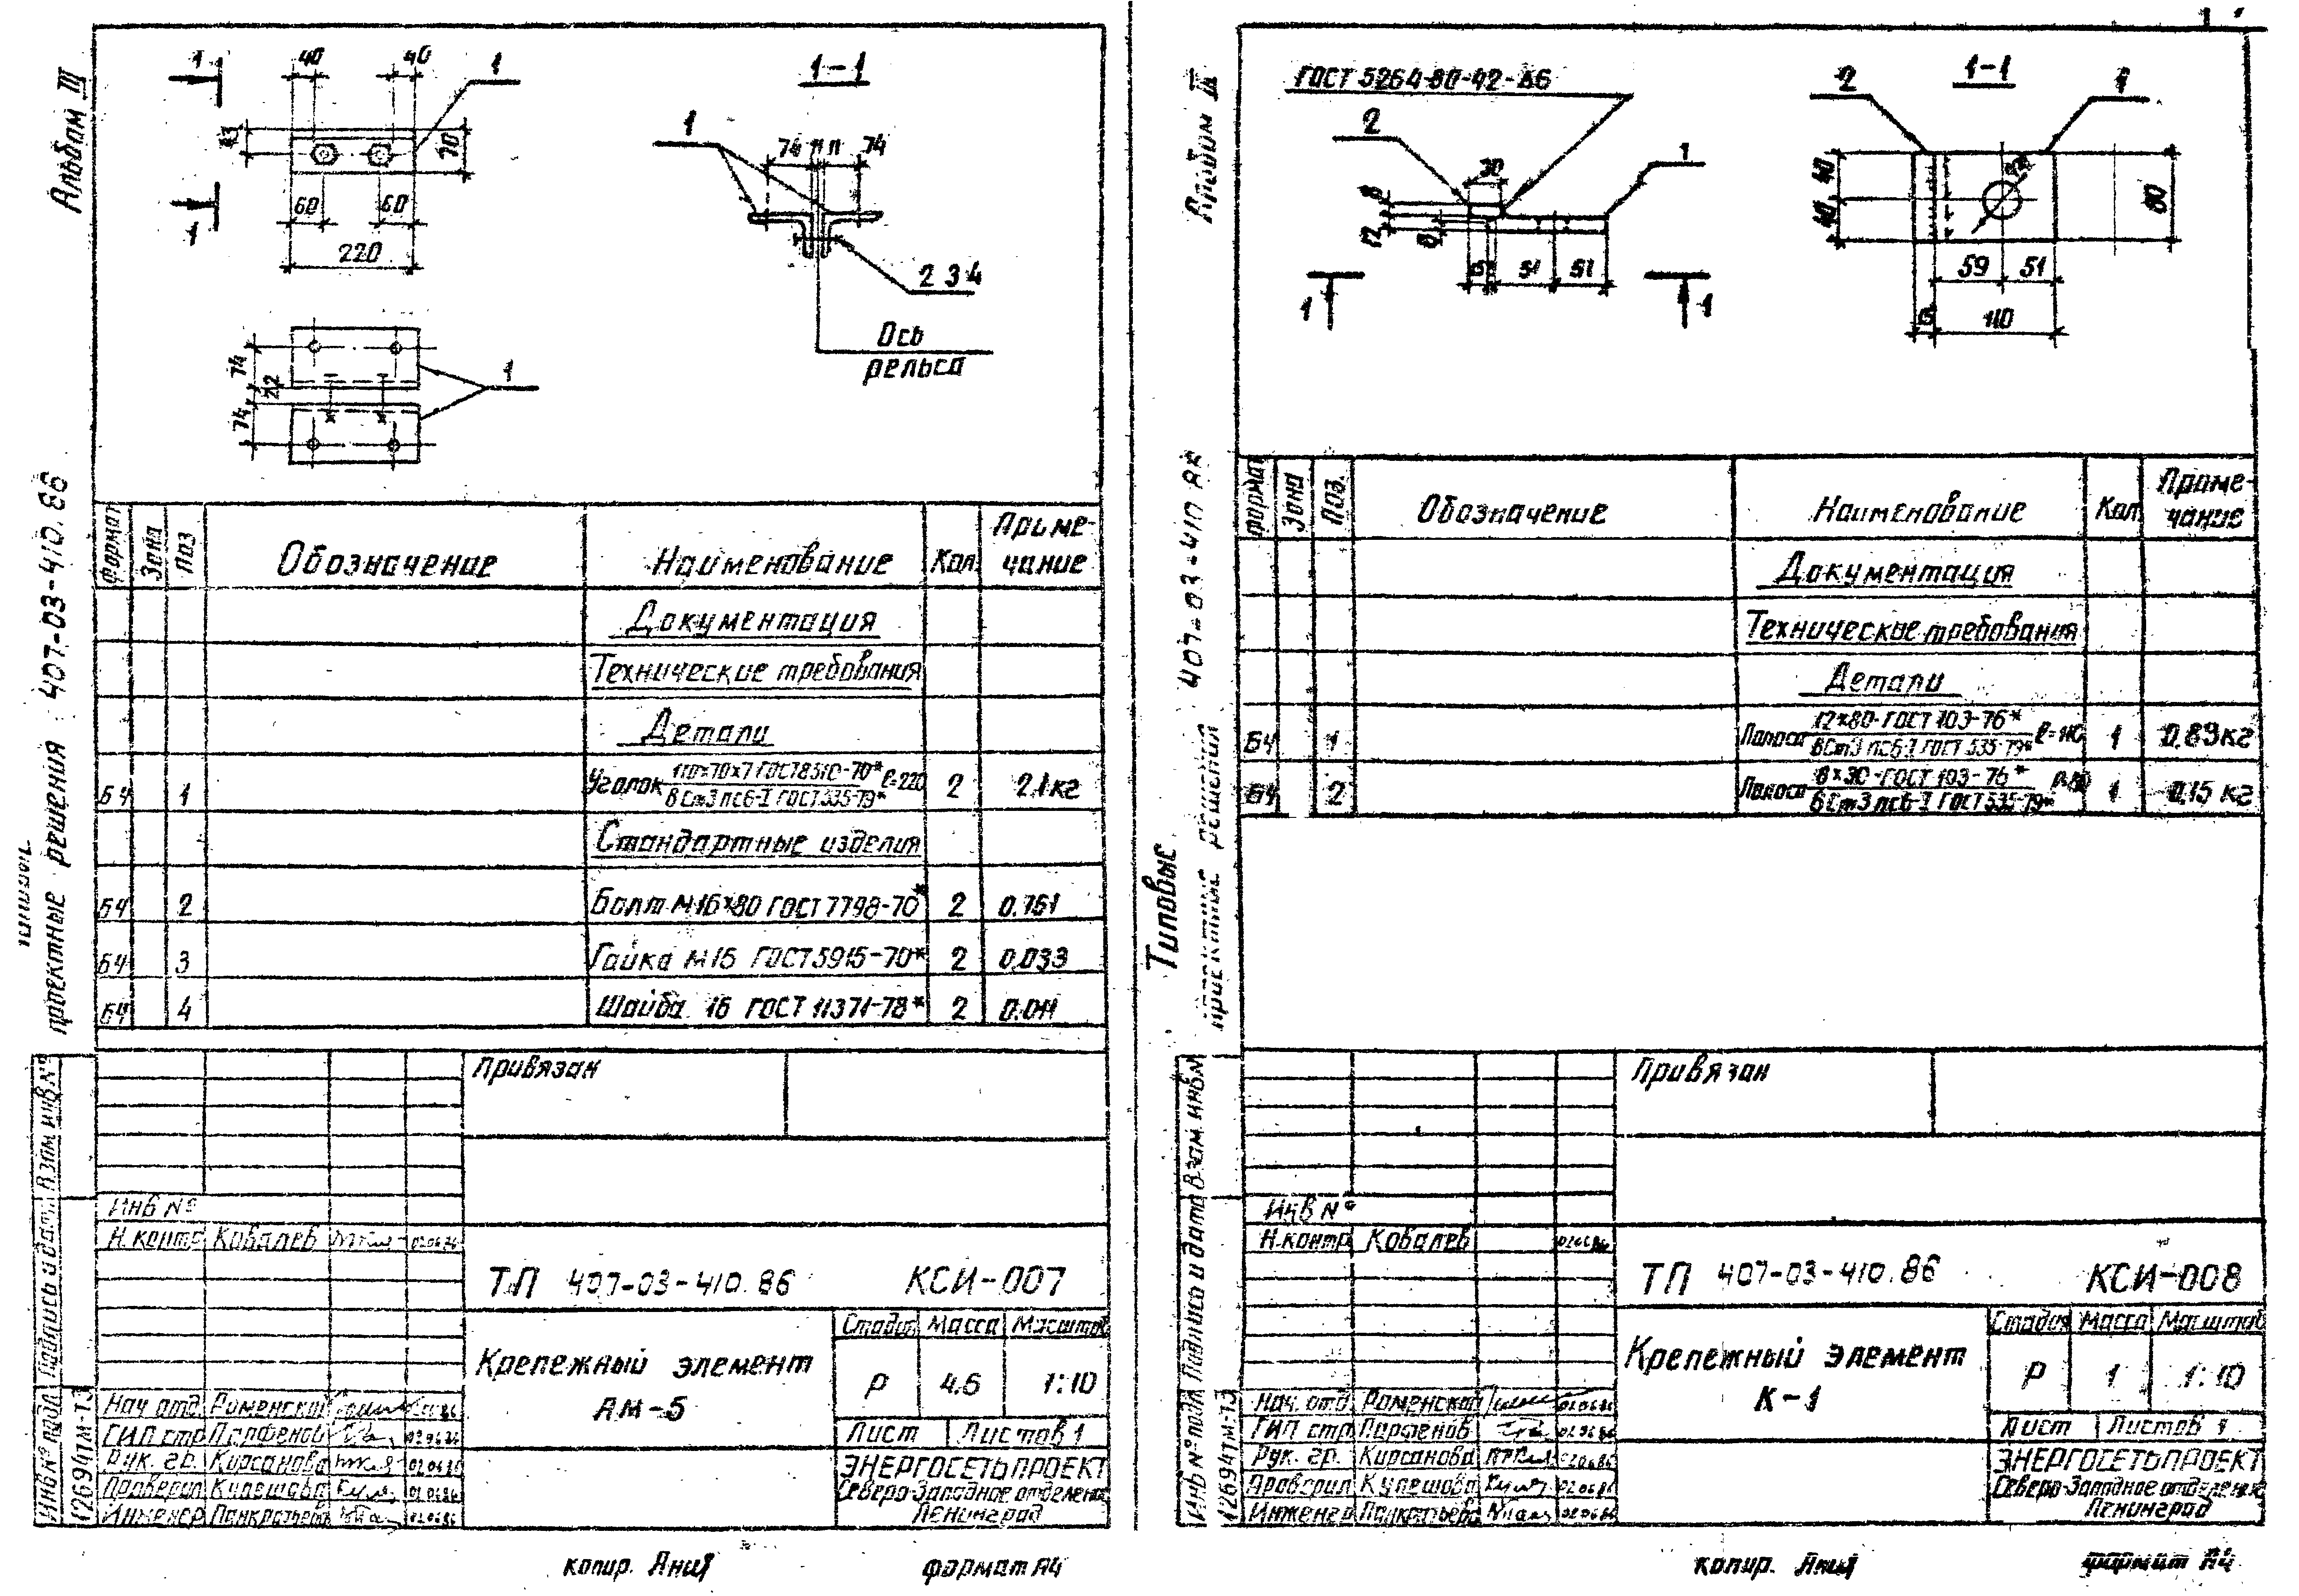 Альбом III
проектные решения 407-03-410.86
1
40
40
1
70
60
60
220
1
74
22
74
1
1-1
1
74 11 11 74
2 3 4
Ось
рельса
Формат Зона Поз Обозначение Наименование Кол. Примечание
Документация
Технические требования
Детали
БЧ 1 Уголок 110×70×7 ГОСТ 8510-70* ℓ=220 2 2.1кг
ВСт3пс6-I ГОСТ 535-79*
Стандартные изделия
БЧ 2 Болт М16×80 ГОСТ 7798-70* 2 0.161
БЧ 3 Гайка М16 ГОСТ 5915-70* 2 0,033
БЧ 4 Шайба 16 ГОСТ 11371-78* 2 0.011
Привязан
Инв №
Н.контр Ковалев 020686
ТП 407-03-410.86 КСИ-007
Крепежный элемент
АМ-5
Стадия Масса Масштаб
Р 4.6 1:10
Лист Листов 1
Нач отд Роменский
ГИП стр Парфенов 020686
Рук. гр. Кирсанова 020686
Проверил Кулешова 020686
Инженер Панкратьева 020686
ЭНЕРГОСЕТЬПРОЕКТ
Северо-Западное отделение
Ленинград
Инв № подл Подпись и дата Взам инв №
12694тм-Т3
копир. Формат А4
Альбом III
Типовые
проектные решения 407-03-410.86
ГОСТ 5264-80-Н2-Δ6
2
30
1
8
12
8
15
51 51
1 1
1-1
2 1
40
40
80
59 51
15 110
Формат Зона Поз. Обозначение Наименование Кол. Примечание
Документация
Технические требования
Детали
БЧ 1 Полоса 12×80-ГОСТ 103-76* ℓ=110 1 0.83кг
ВСт3пс6-I ГОСТ 535-79*
БЧ 2 Полоса 8×30-ГОСТ 103-76* ℓ=80 1 0,15 кг
ВСт3пс6-I ГОСТ 535-79*
Привязан
Инв №
Н.контр Ковалев 020686
ТП 407-03-410.86 КСИ-008
Крепежный элемент
К-1
Стадия Масса Масштаб
Р 1 1:10
Лист Листов 1
Нач. отд. Роменский 020686
ГИП стр Парфенов 020686
Рук. гр. Кирсанова 020686
Проверил Кулешова 020686
Инженер Панкратьева 020686
ЭНЕРГОСЕТЬПРОЕКТ
Северо-Западное отделение
Ленинград
Инв № подл Подпись и дата Взам. инв №
12694тм-Т3
копир. Формат А4